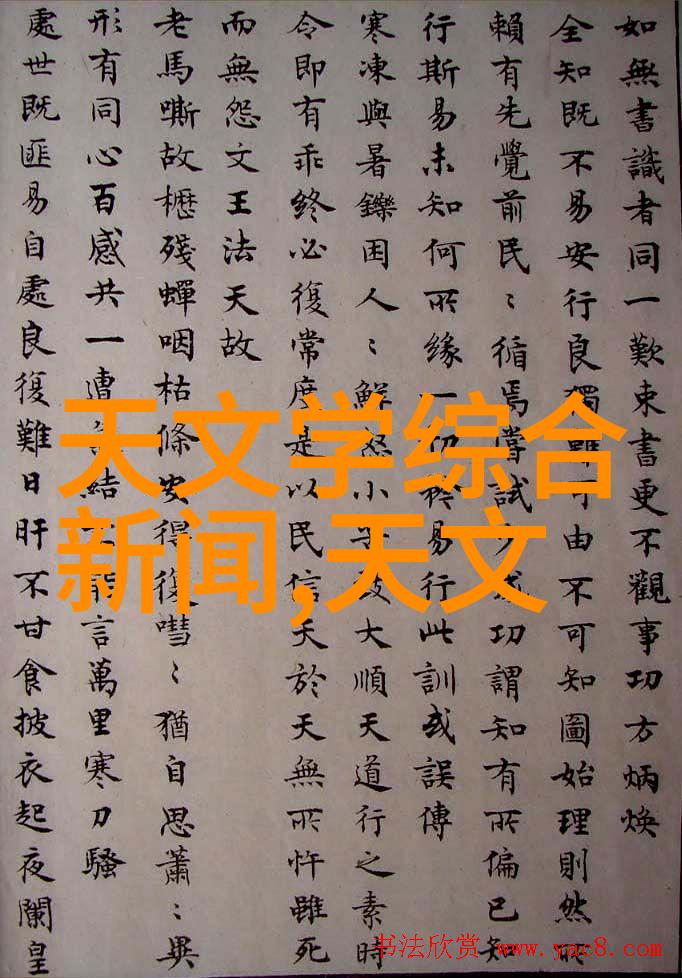 如無書識者同一歎束書更不觀事功方炳煥
全知既不易安行良可由不可知圖始理則然所
賴有先覺前民〻循焉嘗試功謂知有所偏已知
行斯易未知何所緣一切易行此訓或誤傳
寒凍與暑鑠困人〻鮮怨小大順天道行之素時
令即有乖終必復常度是以民信天於天無所忤雖死
而無怨文王法天故
老馬嘶故櫪殘蟬咽枯條安得復嘒〻猶自思蕭〻異
形有同心百感共一遭結能言萬里寒刀騷
處世既匪易自處良復難日旰不甘食披衣起夜闌皇
天文学综合
新闻,天文
书法欣赏 www.yac8.com